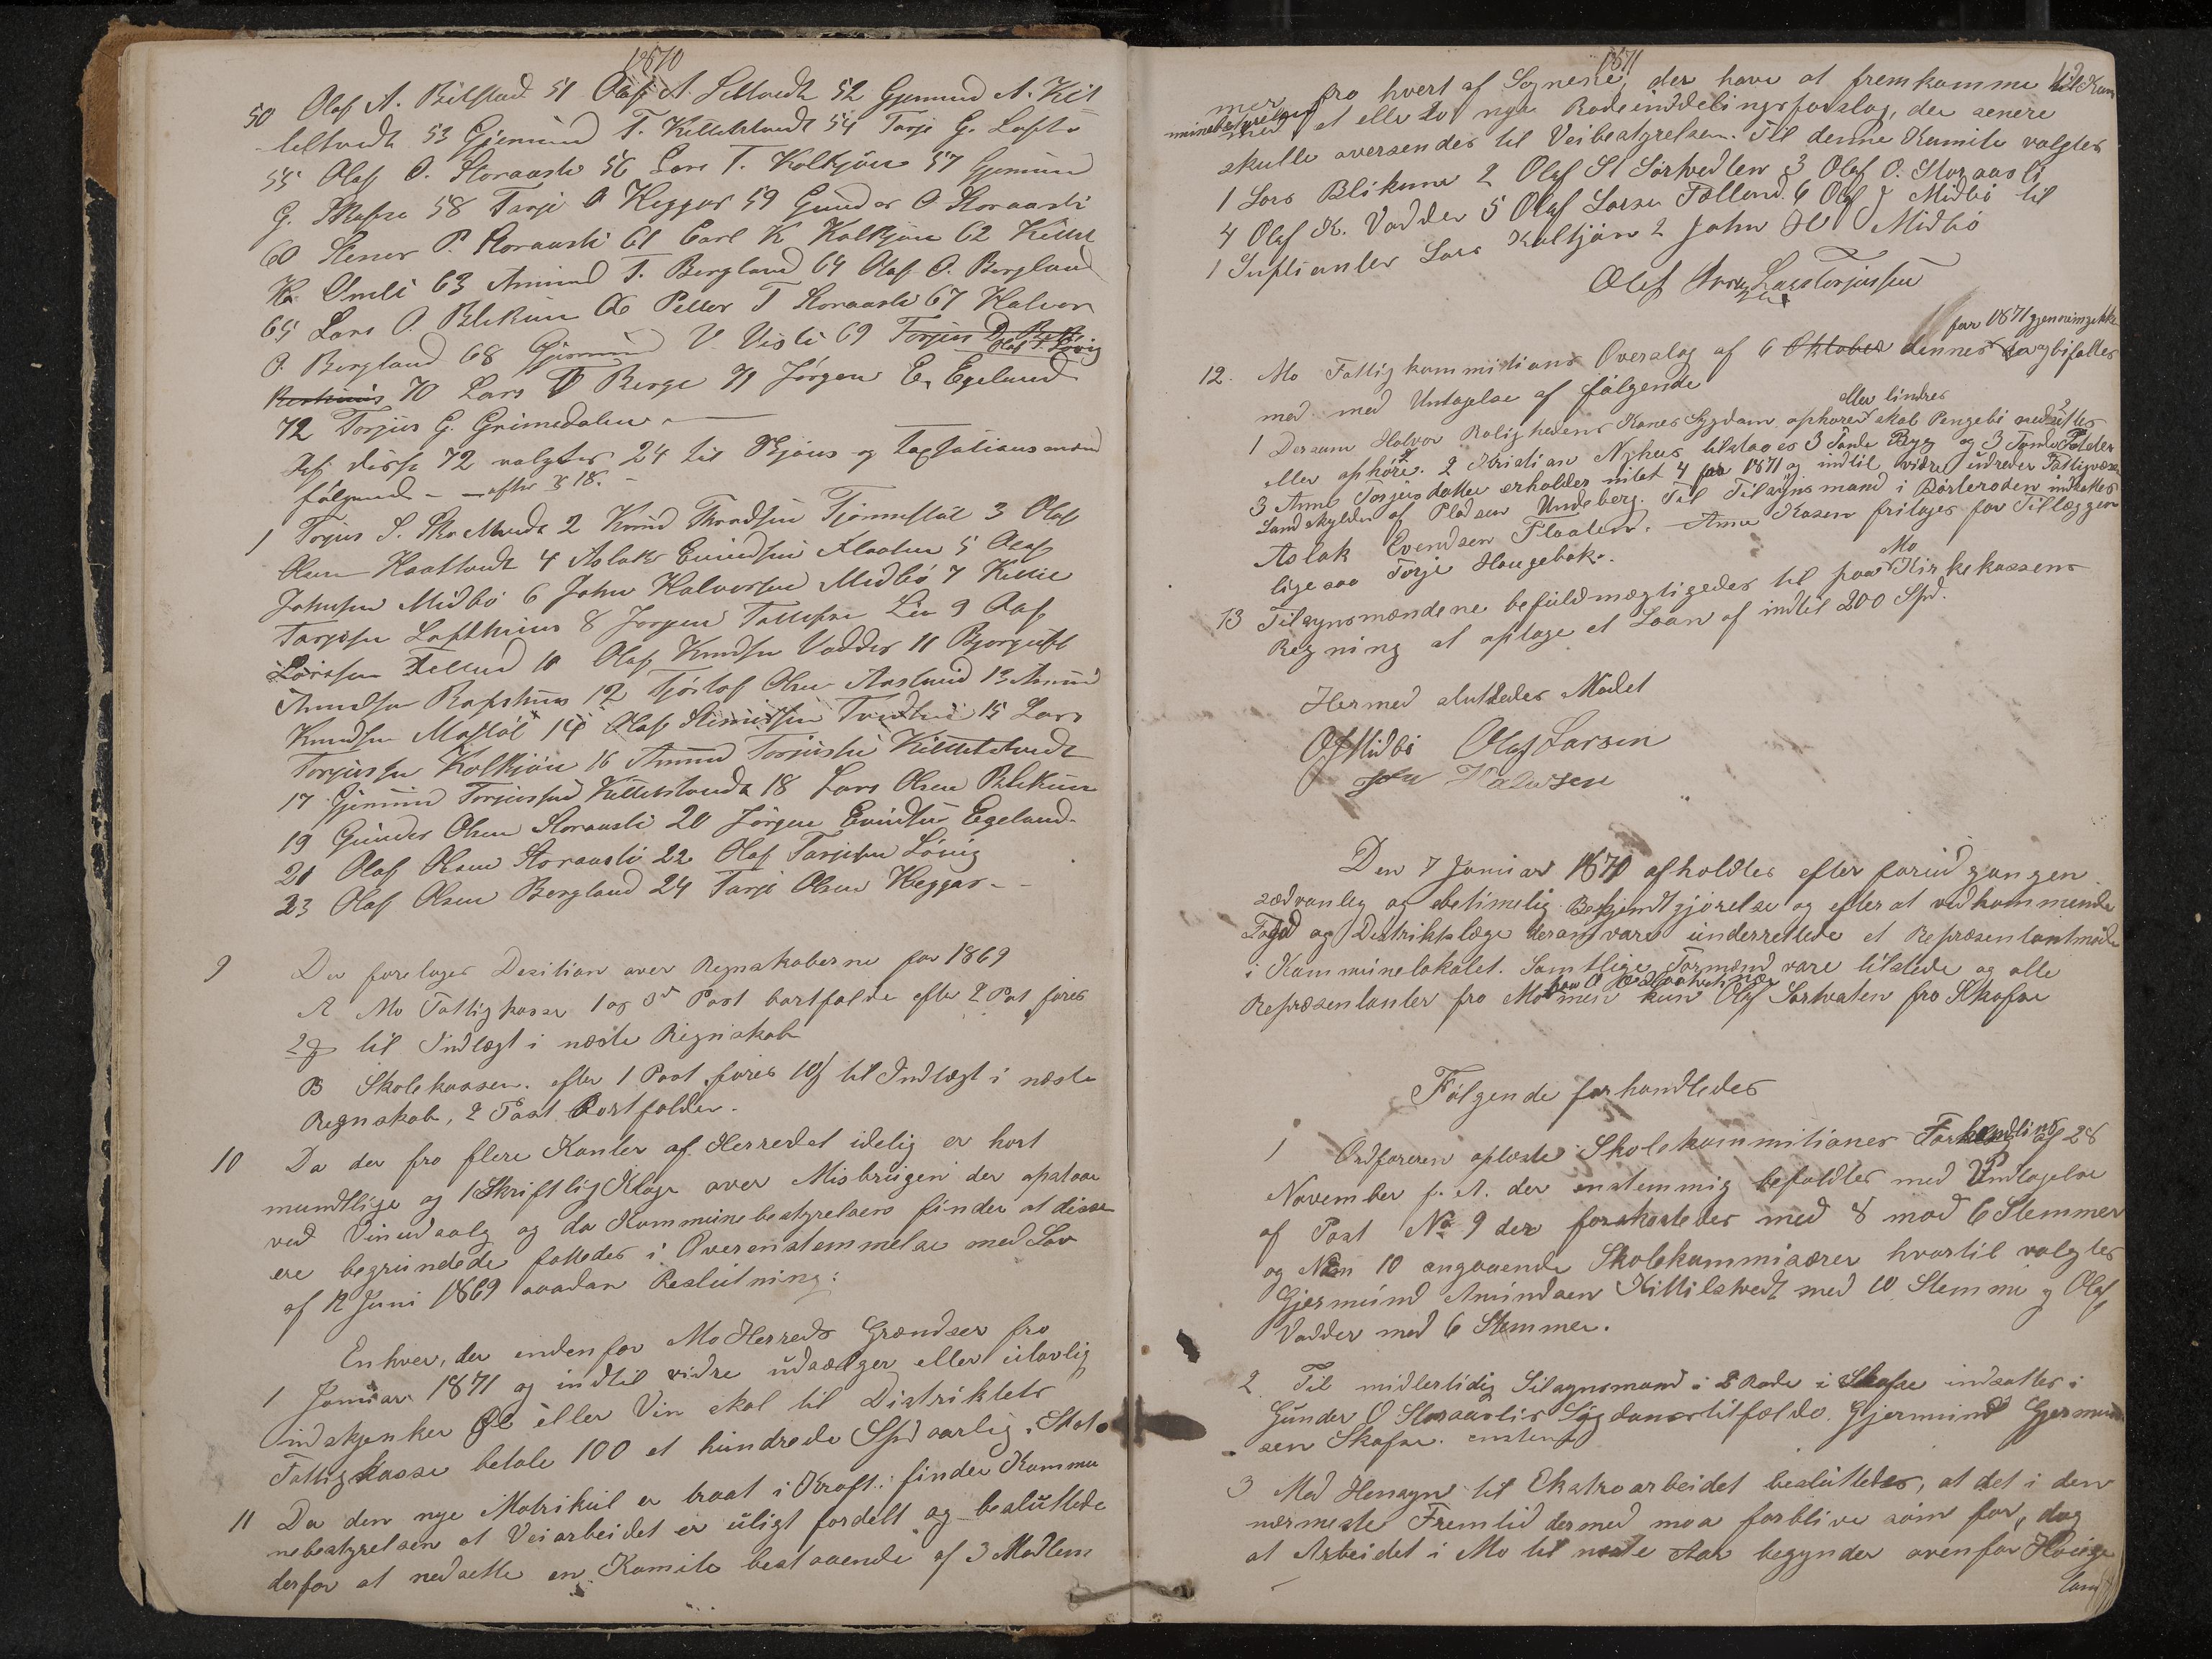 1870
50 Olaf A. Bilstad 51 Olaf A. Siltvedt 52 Gjermund A. Kit
teltvedt 53 Gjermund T. Kittelstvedt 54 Tarje G. Loft
55 Olaf O. Storaasli 56 Lars T. Koltjøn 57 Gjermund
G. Skafsa 58 Tarje O Heggar 59 Gunder O. Storaasli
60 Stener P. Storaasli 61 Carl K Kolkjøn 62 Kittil
K. Omli 63 Amund T. Bergland 64 Olaf O. Bergland
65 Lars O. Blikum 66 Petter T Storaasli 67 Halvor
O. Bergland 68 Gjermund V. Visli 69 Torjus D. Olaf T. Løvig
70 Lars T Berge 71 Jørgen E. Egeland
72 Torjus G. Grimedalen
Af disse 72 valgtes 24 til Skjøns og Taxtationsmænd
følgende – efter § 18. –
1 Torjus S. 2 Knud Trondsen Tjønnstøl 3 Olaf
Olsen Haattvedt 4 Aslak Evindsen Flaaten 5 Olaf
Johnsen Midbø 6 John Halvorsen Midbø 7 Kittil
Tarjesen Lofthuus 8 Jørgen Tallefsen Lien 9 Olaf
Larssen Felland 10 Olaf Knudsen Vadder 11 Bjorguft
Amundsen Rapshuus 12 Tjøstolf Olsen Aaslund 13 Amund
Knudsen Mostøl 14 Olaf 15 Lars
Torjussen Kolkjøn 16 Amund Torjussen Kittelstvedt
17 Gjermund Torjussen Kittelstvedt 18 Lars Olsen Blikum
19 Gunder Olsen Storaasli 20 Jørgen Evindsen Egeland
21 Olaf Olsen Storaasli 22 Olaf Tarjesen Løvig
23 Olaf Olsen Bergland 24 Tarje Olsen Heggar –
9 Der foretoges Desition over Regnskaberne for 1869
A Mo Fattigkasse 1 og 3de Post bortfalde efter 2 Post føres
2 til Indtægt i næste Regnskab
B Skolekassen. efter 1 Post føres 10 til Indtægt i næste
Regnskab, 2 Post Bortfalder.
10 Da der fra flere Kanter af Herredet idelig er hørt
mundtlige og 1 Skriftlig Klage over Misbrugen der opstaar
ved Vinudsalg og da Kommunebestyrelsen finder at disse
ere begrundede fattedes i Overenstemmelse med Lov
af 12 Juni 1869 saadan Beslutning:
Enhver, der indenfor Mo Herreds Grændser fra
1 Januar 1871 og indtil vidre udsælger eller ulovlig
indskjenker Øl eller Vin skal til Distriktets
Fattigkasse betale 100 et hundrede Spd aarlig. Skat.
11 Da den nye Matrikul er traat i Kraft: finder Kommu
nebestyrelsen at Veiarbeidet er uligt fordelt og besluttede
derfor at nedsætte en Komite bestaaende af 3 Medlem
1871
mer fra hvert af Sognene, der have at fremkomme til Kom
munebestyrelsen
med et eller to nye Rodeinddelingsforslag, der senere
skulle oversendes til Veibestyrelsen. Til denne Komite valgtes
1 Lars Blikum 2 Olaf St Sørtvedten 3 Olaf O. Storaasli
4 Olaf K. Vadder 5 Olaf Larsen Felland. 6 Olaf J Midbø til
1 Supleanter Lars Koltjøn 2 John H Midbø
Olaf Lars Torjussen
for 1871 gjennemgikkes
12. Mo Fattigkommitions Overslag af 6 Oktober dennes og bifaltes
med med Untagelse af følgende
eller lindres
1 Dersom Halvor Roligheddens Kones Sygdom ophører skal Pengebi nedsættes
eller ophøre. 2 Kristian Nyhus tilstaaes 3 Tønder Byg og 3 Tønder Poteter
3 Anne Torjusdatter erholder intet 4 for 1871 og indtil vidre udreder Fattigvæs
Landskylden af Pladsen Undeberg. Til Tilsynsmand i Børteroden indsattes
Aslak Evendsen Flaaten. Anne Kasen fritages for Tillæggen
ligesaa Torje Haugebak.
Mo
13 Tilsynsmændene befuldmægtigedes til paa Kirkekassens
Regning at optage et Laan af indtil 200 Spd.
Hermed sluttedes Mødet
O J Midbø Olaf Larsen
John Halvorsen
Den 7 Januar 1871 afholdtes efter forudgangen
sædvanlig og betimelig Bekjendtgjørelse og efter at vedkommende
Foged og Distriktslæge derom vare underrettede et Repræsentantmøde
i Kommunelokalet. Samtlige Formænd vare tilstede og alle
Repræsentanter fra Mo men kun Olaf Sørtveten fra Skafsa
Følgende forhandledes
1 Ordføreren oplæste Skolekommitiones Forhandling af 28
November f. A. der enstemmig befaldtes med Undtagelse
af Post No 9 der forskastedes med 8 mod 6 Stemmer
og Num 10 angaaende Skolekommisærer hvortil valgtes
Gjermund Amundsen Kittilstvedt med 10 Stemme og Olaf
Vadder med 6 Stemmer.
2 Til midlertidig Tilsynsmand i 2 Rode i Skafsa indsattes i
Gunder O Storaaslis Sygdomstilfælde. Gjermund Gjermund
sen Skafsa. enstem
3 Med Hensyn til Ekstraarbeidet besluttedes, at det i den
nærmeste Fremtid dermed maa forblive som før, dog
at Arbeidet i Mo til neste Aar begynder ovenfor Houge
land